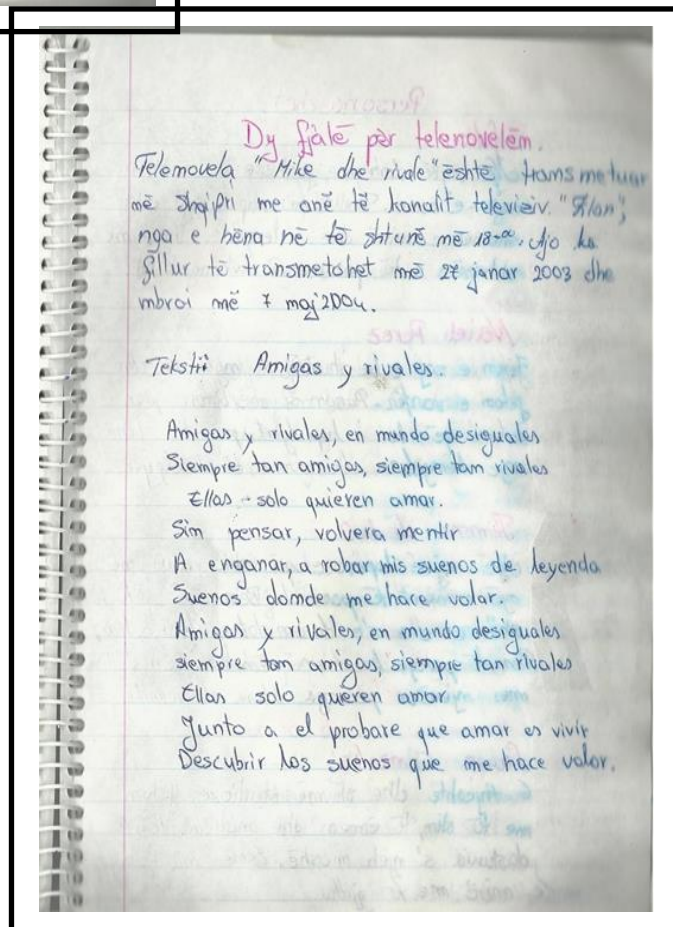 Dy fjalë për telenovelën.
Telenovela "Mike dhe rivale" është transmetuar
më Shqipri me anë të kanalit televiziv. "Klan",
nga e hëna në të shtunë më 18-ºº. Ajo ka
fillur të transmetohet më 27 janar 2003 dhe
mbroi më 7 maj 2004.
Teksti: Amigas y rivales.
Amigas y rivales, en mundo desiguales
Siempre tan amigas, siempre tan rivales
Ellas solo quieren amar.
Sin pensar, volvera mentir
A enganar, a robar mis suenos de leyenda
Suenos donde me hace volar.
Amigas y rivales, en mundo desiguales
siempre tan amigas, siempre tan rivales
Ellas solo queren amar
Junto a el probare que amar es vivir
Descubrir los suenos que me hace volar.